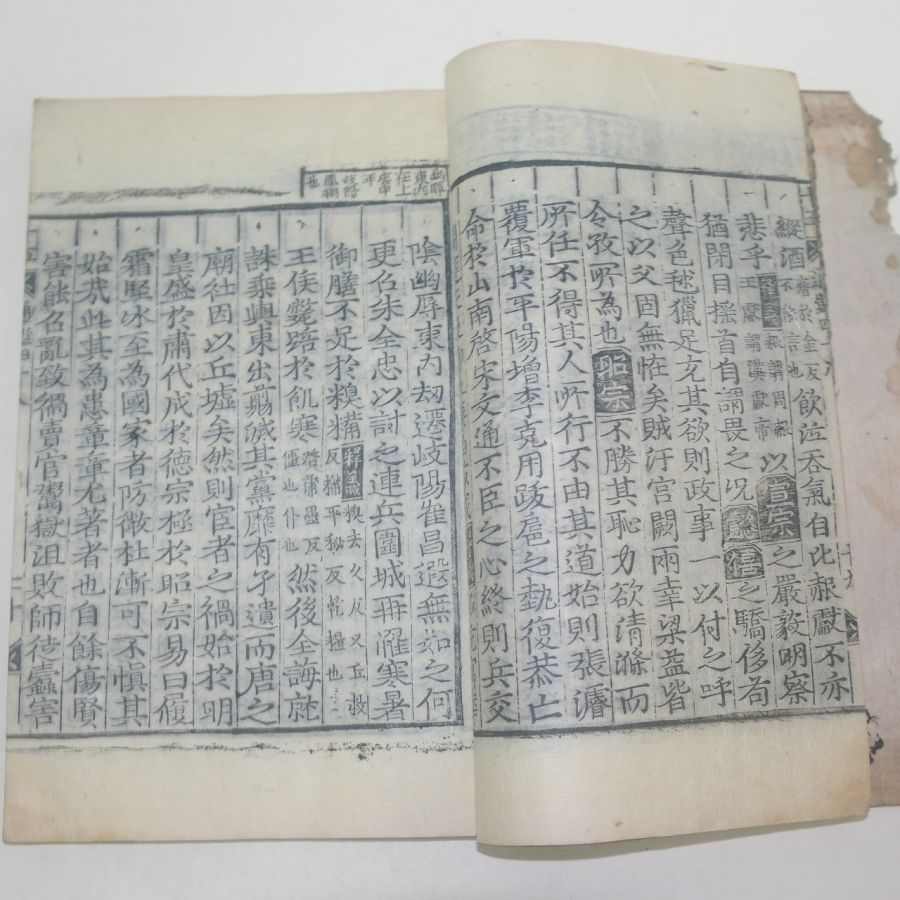 縱酒飲泣吞氣自比赧獻不亦
悲乎王赧謂周赧王獻謂漢獻帝以宣宗之嚴毅明察
猶閉目搖首自謂畏之况懿僖之驕侈苟
聲色毬獵足充其欲則政事一以付之呼
之以父固無怪矣賊汙宮闕兩幸梁益皆
令孜所為也昭宗不勝其恥力欲清滌而
所任不得其人所行不由其道始則張濬
覆軍於平陽增李克用跋扈之埶復恭亡
命於山南啓宋文通不臣之心終則兵交
岐陽
陰幽辱東內劫遷岐陽崔昌遐無如之何
更名朱全忠以討之連兵圍城再罹寒暑
御膳不足於糗糒釋義糗去久反又丘救反糒平秘反乾糧也
王侯斃踣於飢寒踣蒲墨反僵也仆也然後全誨就
誅乘輿東出翦滅其黨靡有孑遺而唐之
廟社因以丘墟矣然則宦者之禍始於明
皇盛於肅代成於德宗極於昭宗易曰履
霜堅冰至為國家者防微杜漸可不慎其
始哉此其為患章章尤著者也自餘傷賢
害能召亂致禍賣官鬻獄沮敗師徒蠹害